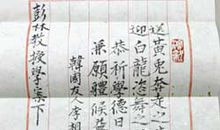 送黄兎奔走之
迎白龍活舞之
恭祈學德日
兼願體候益
韓國友人李相
彭林教授學案下